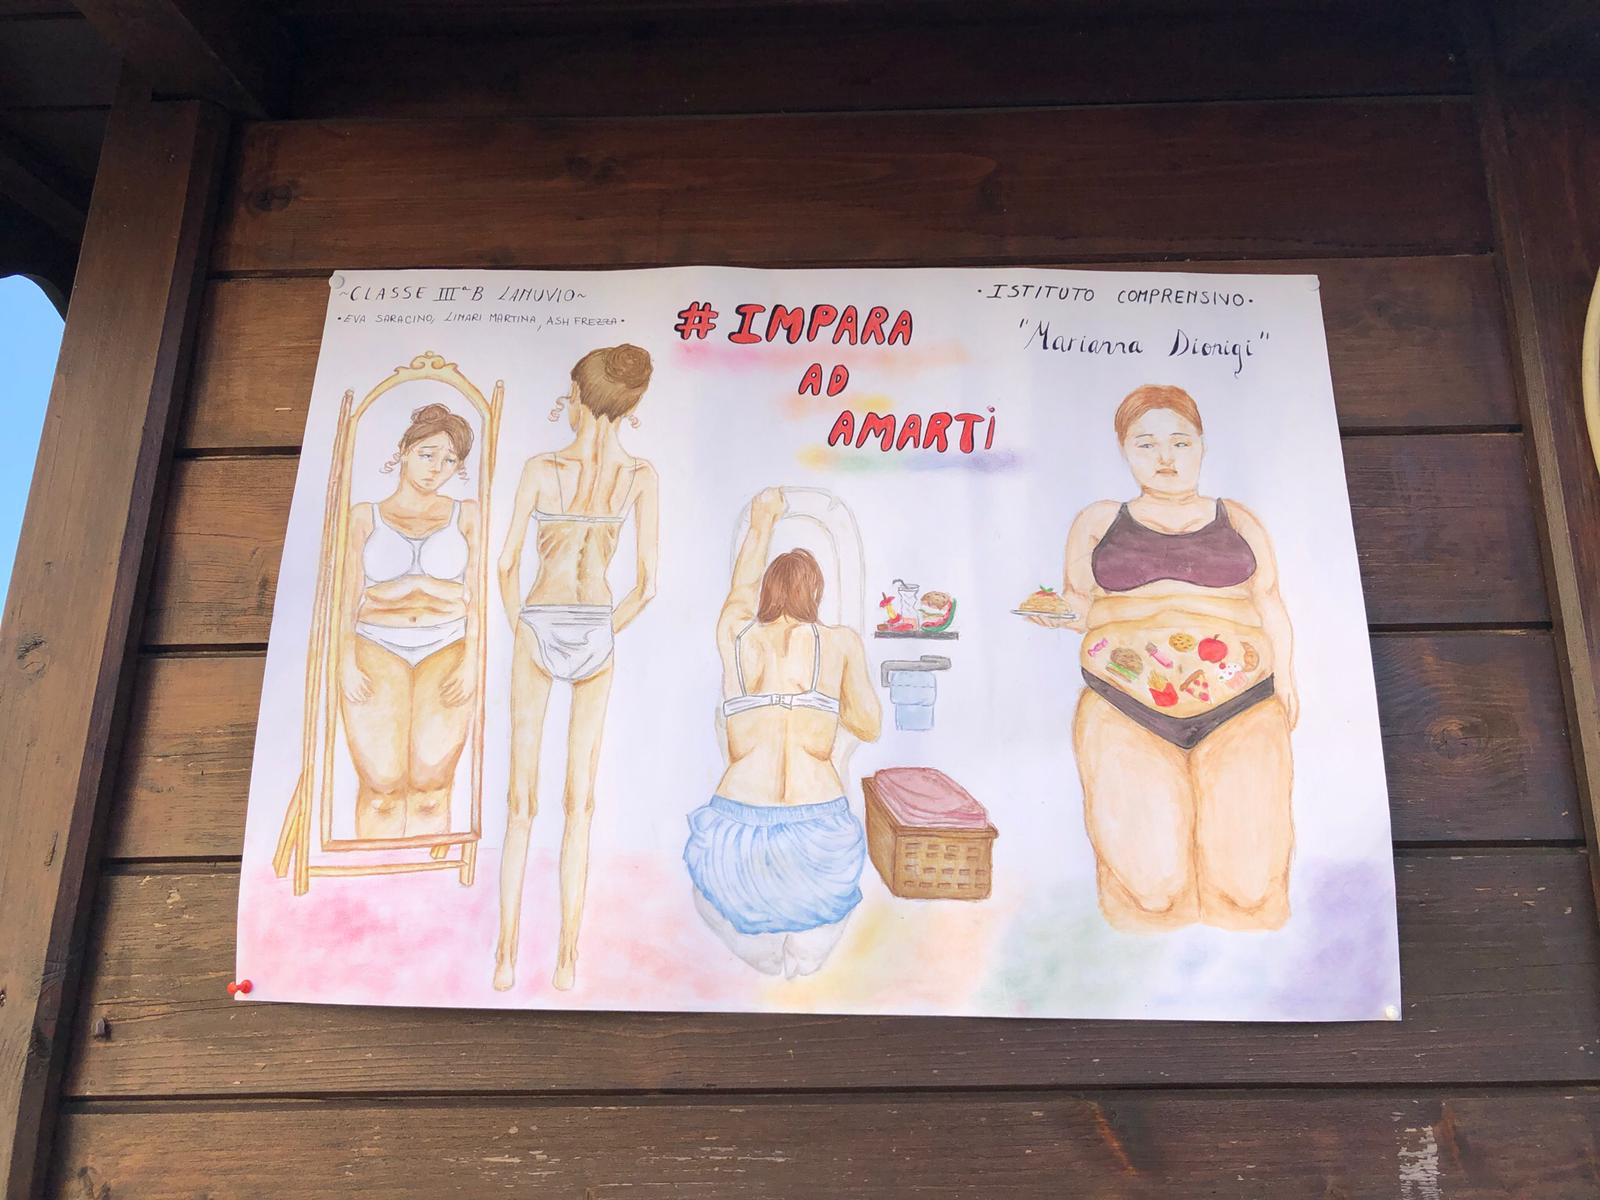 ~CLASSE IIIªB LANUVIO~
•EVA SARACINO, LINARI MARTINA, ASH FREZZA•
# IMPARA
AD
AMARTI
•ISTITUTO COMPRENSIVO•
"Marianna Dionigi"